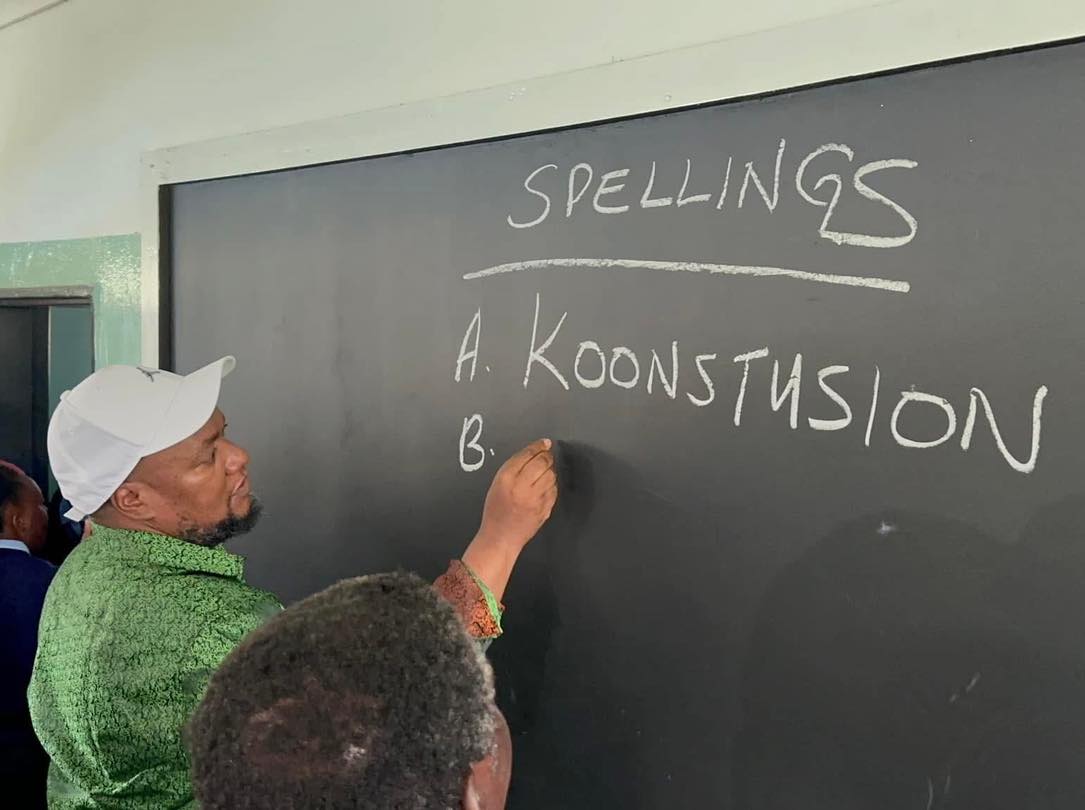 SPELLINGS
A. KOONSTUSION
B.